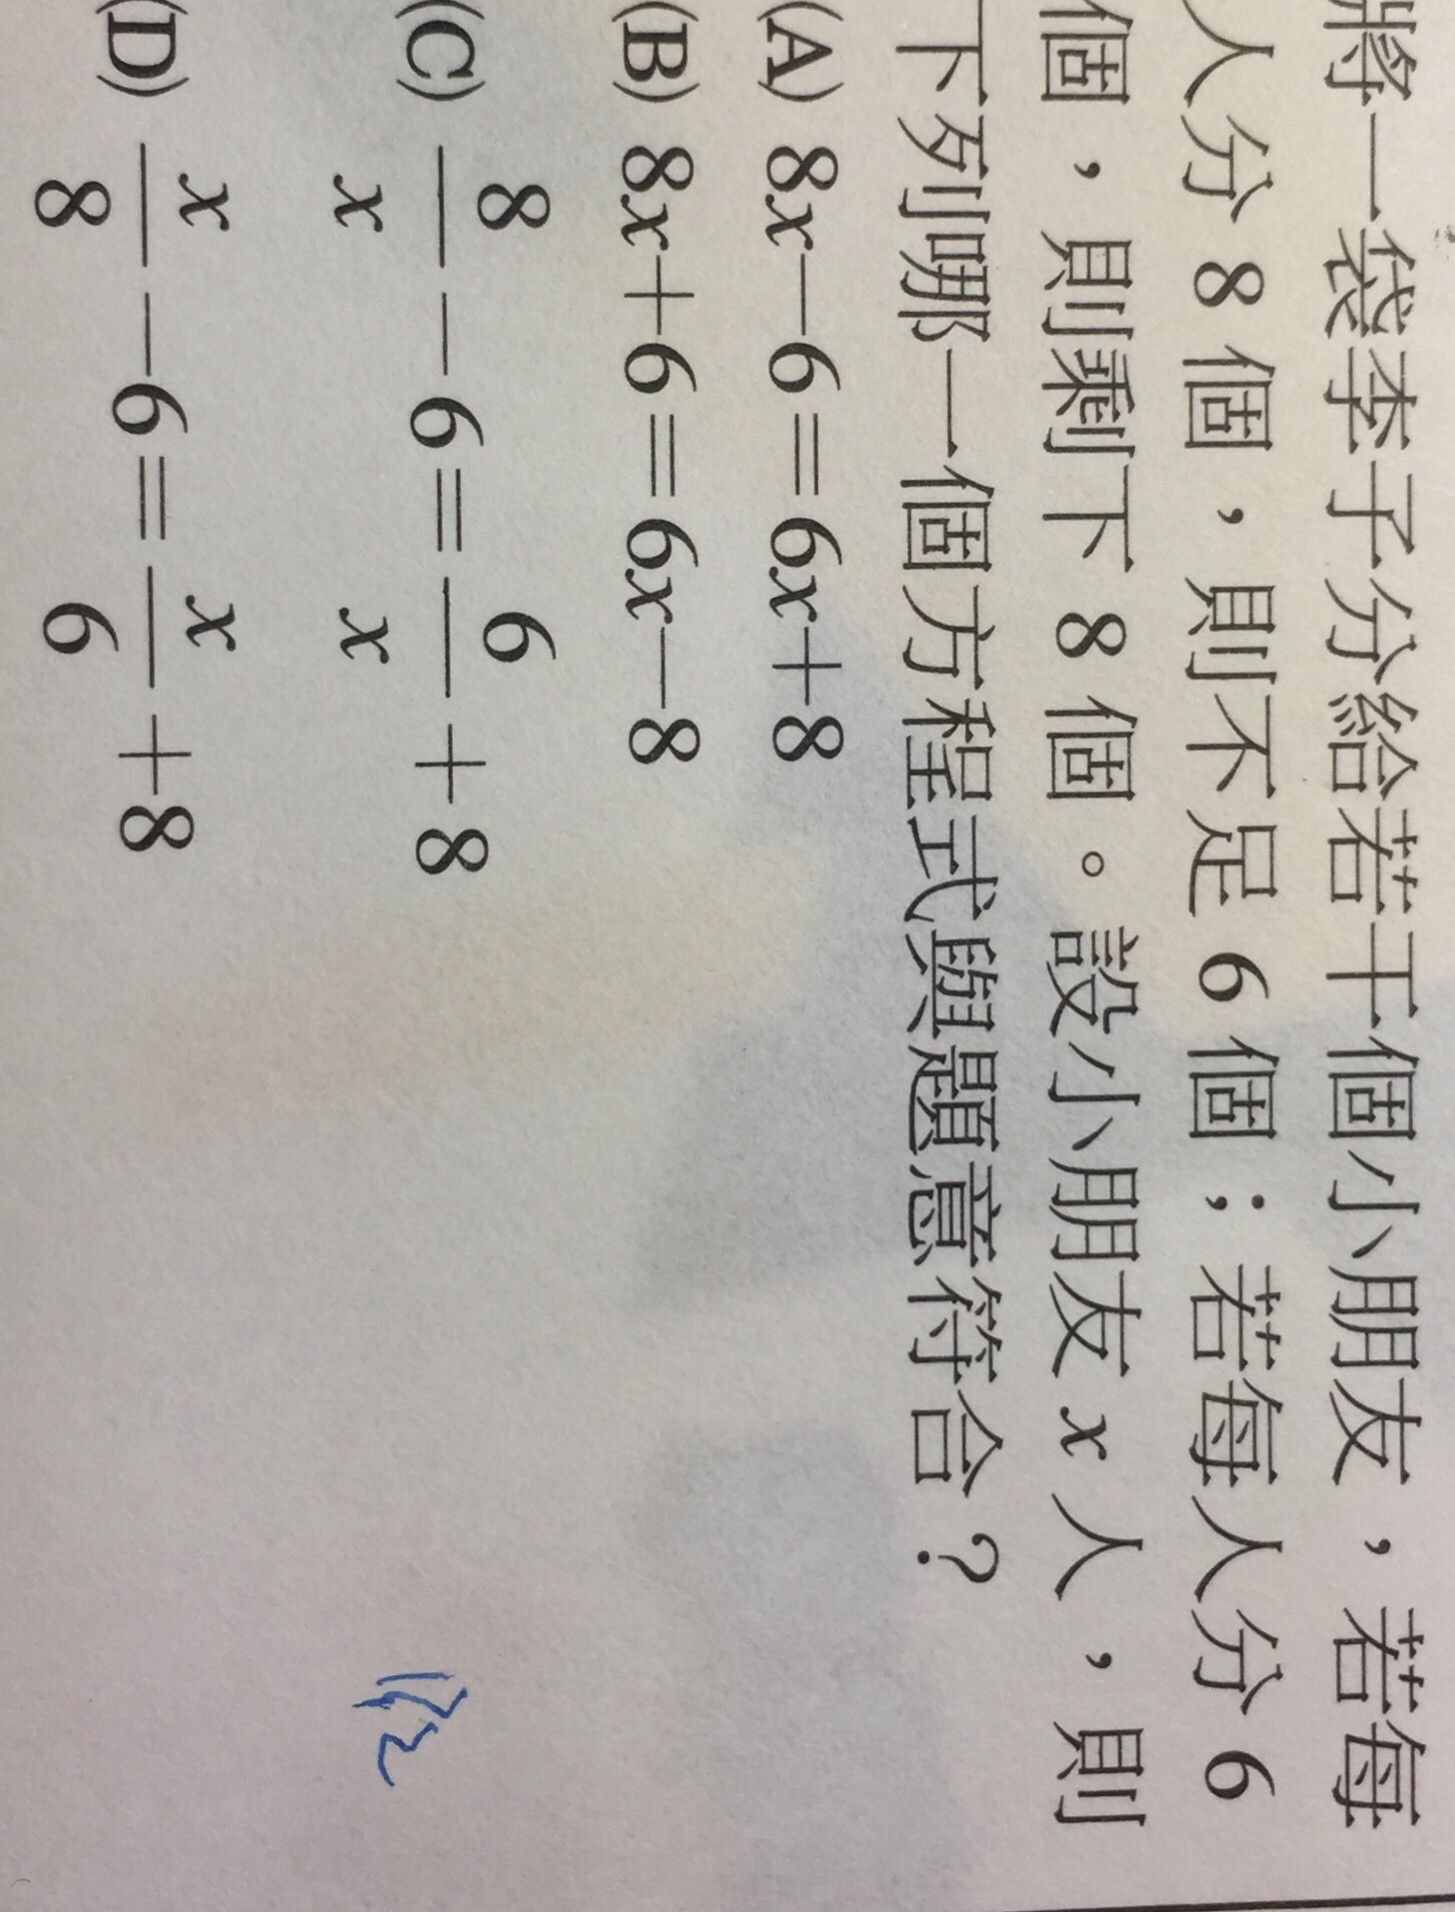 將一袋李子分給若干個小朋友，若每
人分 8 個，則不足 6 個；若每人分 6
個，則剩下 8 個。設小朋友 x 人，則
下列哪一個方程式與題意符合？
(A) 8x－6＝6x＋8
(B) 8x＋6＝6x－8
(C) 8/x－6＝6/x＋8
(D) x/8－6＝x/6＋8